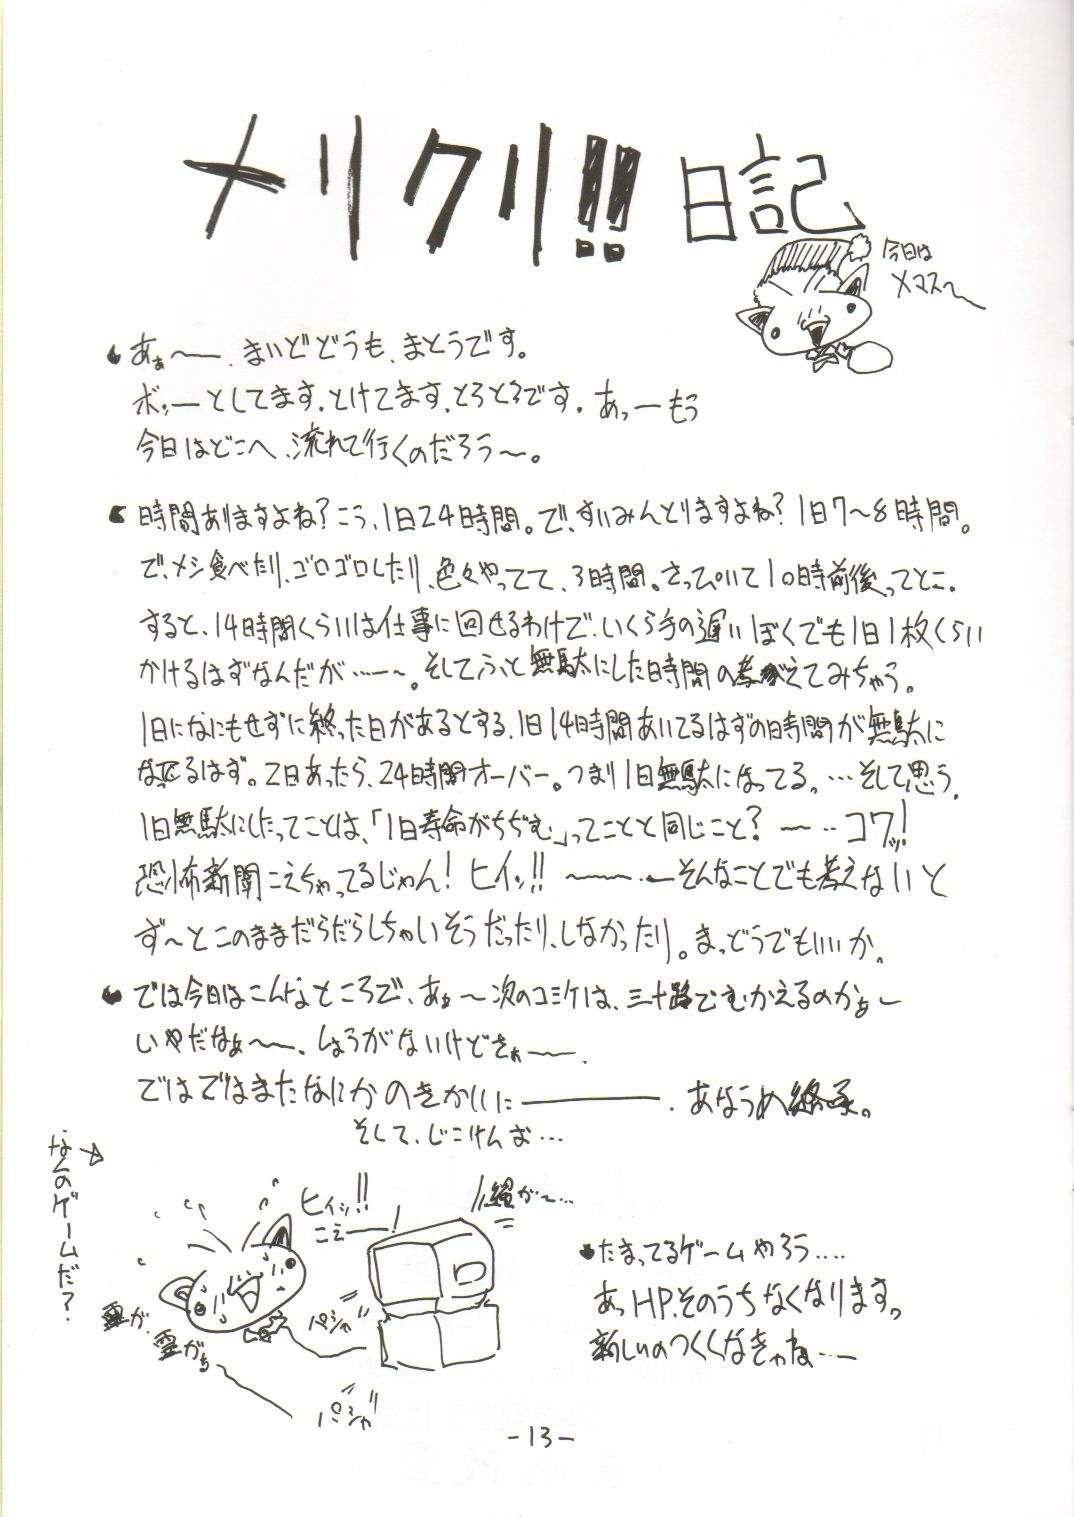 メリクリ!! 日記
今日は
Xマス〜
あぁ〜ー、まいどどうも、まとうです。
ボッーとしてます、とけてます、とろとろです。あっーもう
今日はどこへ、流れて行くのだろう〜。
時間ありますよね?こう、1日24時間。で、すいみんとりますよね?1日7〜8時間。
で、メシ食べたり、ゴロゴロしたり、色々やってて、3時間。さっぴいて10時前後ってとこ。
すると、14時間くらいは仕事に回せるわけで、いくら手の遅いぼくでも1日1枚くらい
かけるはずなんだが……〜。そしてふと無駄にした時間の考がえてみちゃう。
1日になにもせずに終った日があるとする、1日14時間あいてるはずの時間が無駄に
なってるはず。2日あったら、24時間オーバー。つまり1日無駄になってる。…そして思う、
1日無駄にしたってことは、「1日寿命がちぢむ」ってことと同じこと?〜‥コワッ!
恐怖新聞こえちゃってるじゃん!ヒイッ!!〜〜‥ーそんなことでも考えないと
ず〜とこのままだらだらしちゃいそうだったり、しなかったり。まっどうでもいいか。
では今日はこんなところで、あぁ〜次のコミケは、三十路でむかえるのかぁー
いやだなぁ〜ー、しょうがないけどさぁー、
ではではまたなにかのきかいに――――、あなうめ終了。
そして、じこけんお…
なんのゲームだ?
ヒイッ!!
こえー!
霊が、
霊がぁ
パシャ
パシャ
たまってるゲームやろう‥‥
あっHP、そのうちなくなります。
新しいのつくくなきゃね…ー
-13-